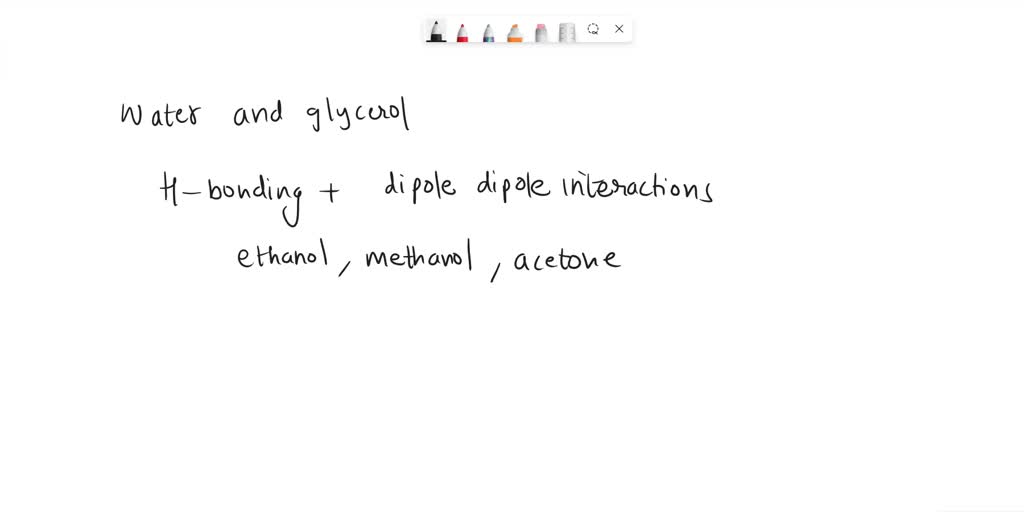 Water and glycerol
H-bonding + dipole dipole interactions
ethanol, methanol, acetone